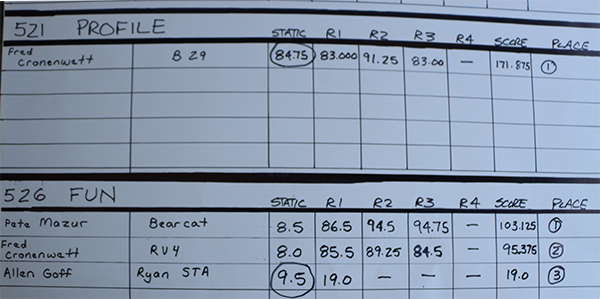 521 PROFILE STATIC R1 R2 R3 R4 SCORE PLACE
Fred Cronenwett B 29 84.75 83.000 91.25 83.00 — 171.875 1
526 FUN STATIC R1 R2 R3 R4 SCORE PLACE
Pete Mazur Bearcat 8.5 86.5 94.5 94.75 — 103.125 1
Fred Cronenwett RV4 8.0 85.5 89.25 84.5 — 95.375 2
Allen Goff Ryan STA 9.5 19.0 — — — 19.0 3